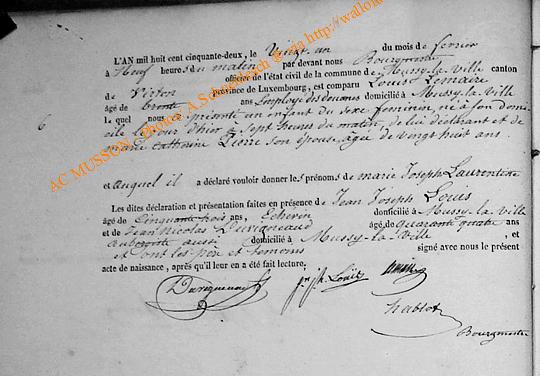 L'AN mil huit cent cinquante-deux, le Vingt-un du mois de fevrier
à Neuf heures du matin par devant nous Bourgmestre
officier de l'état civil de la commune de Mussy-la-Ville canton
de Virton province de Luxembourg, est comparu Louis Lemaire
âgé de trente ans Employé des douanes domicilié à Mussy-la-Ville
6 lequel nous a présenté un enfant du sexe feminin né à son domi
cile le jour d'hier à sept heures du matin, de lui déclarant et de
marie catherine Pierre son épouse agée de vingt huit ans.
et auquel il a déclaré vouloir donner les prénoms de marie Joseph Laurentine
Les dites déclaration et présentation faites en présence de Jean Joseph Louis
âgé de Cinquante trois ans, domicilié à Mussy-la-Ville
et de Jean Nicolas Duvigneaud âgé de quarante quatre ans
Aubergiste aussi domicilié à Mussy-la-Ville, et
et ont les père et temoins signé avec nous le présent
acte de naissance, après qu'il leur en a été fait lecture.
Duvigneaud Jn Jh Louis
hablot
Bourgmestre
AC MUSSON, photos A.S @ via http://wallo